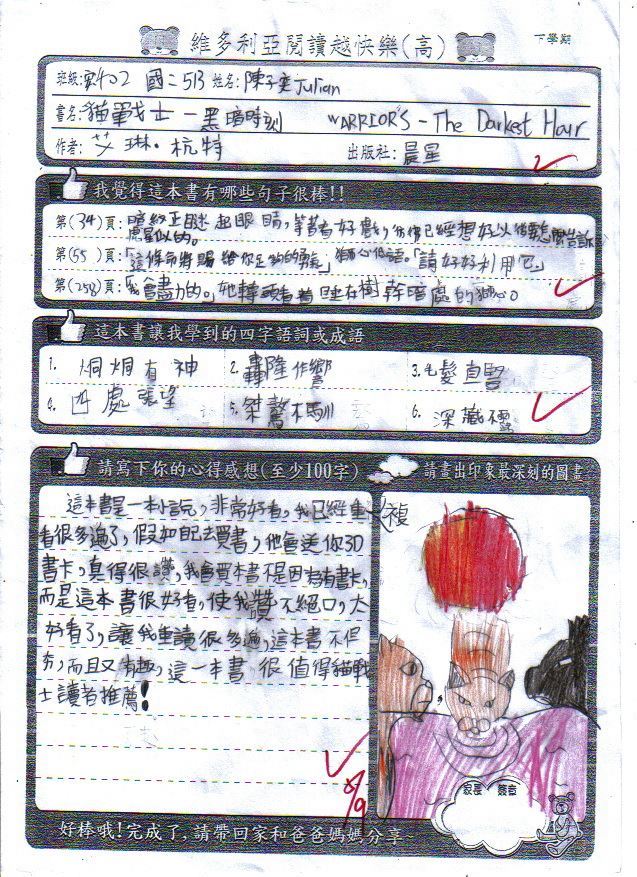 維多利亞閱讀越快樂(高)
下學期
班級: 402 國二513 姓名:陳子奕Julian
書名:貓戰士－黑暗時刻 WARRIORS - The Darkest Hour
作者: 艾琳·杭特 出版社:晨星
我覺得這本書有哪些句子很棒!!
第(34)頁:暗紋正瞇起眼睛,
虎星似的。
第(55)頁:「這條命將賜給你 的勇氣」 「請好好利用它」
第(258)頁:「我會盡力的。」她轉頭看著睡在樹幹暗處的
這本書讓我學到的四字語詞或成語
1. 炯炯有神 2. 轟隆作響 3. 毛髮直豎
4. 四處張望 5. 桀驁不馴 6. 深藏不露
請寫下你的心得感想(至少100字)
請畫出印象最深刻的圖畫
這本書是一本小說,非常好看,我已經重複
看很多遍了,假如自己去買書,他會送你3D
書卡,真得很讚,我會買本書不是因為有書卡,
而是這本書很好看,使我贊不絕口,太
好看了,讓我重讀很多遍,這本書不但
夯,而且又有趣,這一本書,很值得貓戰
士讀者推薦!
5/9
家長 簽章
好棒哦!完成了,請帶回家和爸爸媽媽分享~